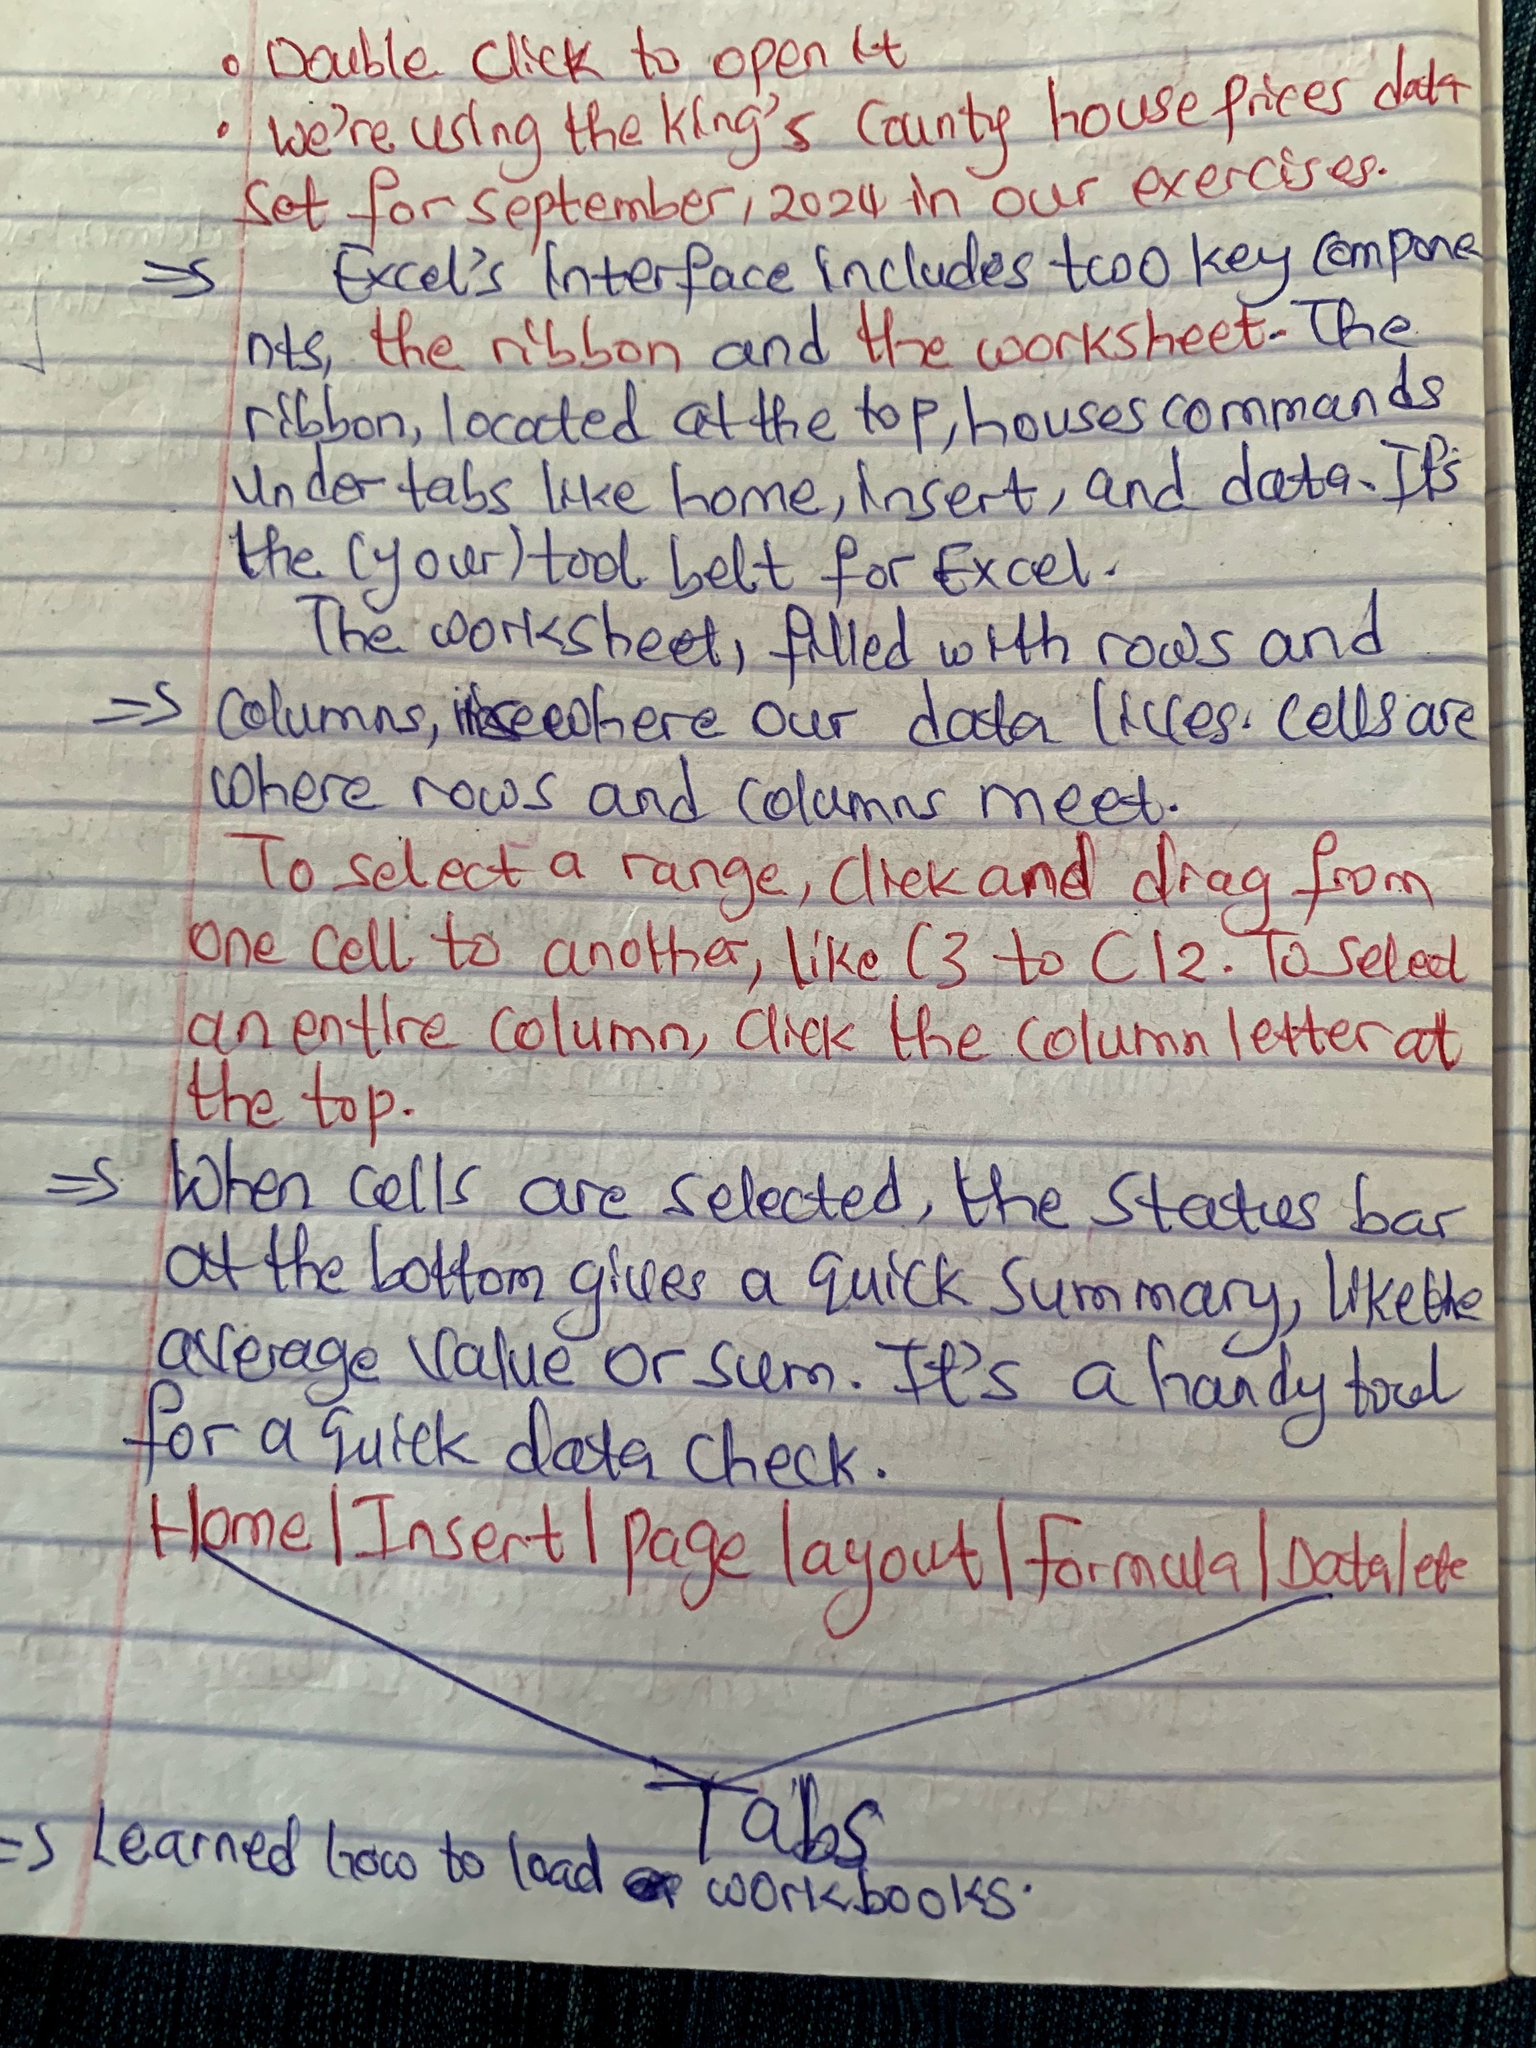 • Double click to open it
• We're using the King's County house prices data
set for september, 2024 in our exercises.
=> Excel's interface includes two key compone
nts, the ribbon and the worksheet. The
ribbon, located at the top, houses commands
under tabs like home, insert, and data. It's
the (your) tool belt for Excel.
The worksheet, filled with rows and
=> columns, where our data lives. cells are
where rows and columns meet.
To select a range, click and drag from
one cell to another, like C3 to C12. To select
an entire column, click the column letter at
the top.
=> When cells are selected, the status bar
at the bottom gives a quick summary, like the
average value or sum. It's a handy tool
for a quick data check.
Home | Insert | page layout | formula | Data | etc
Tabs
=> Learned how to load workbooks.